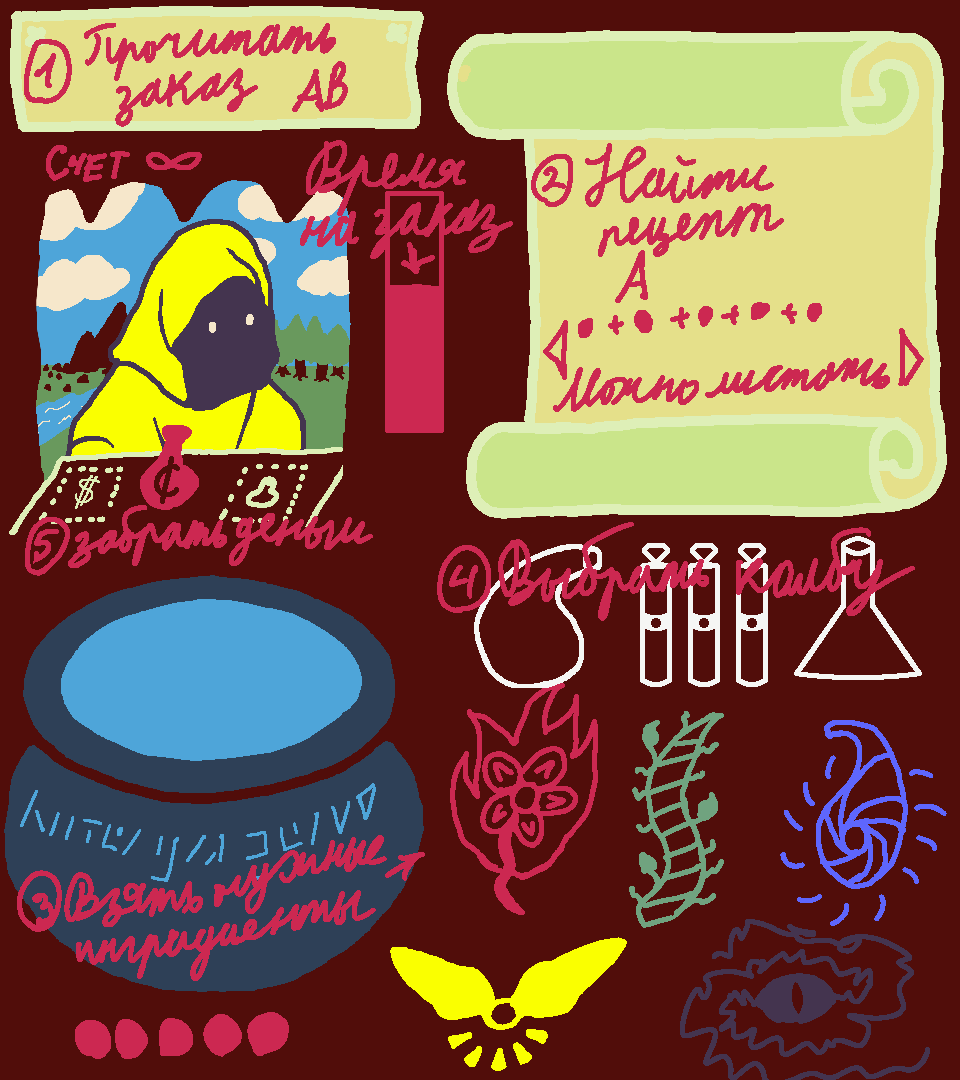 ① Прочитать
заказ АВ
Счет ∞
Время
на заказ
② Найти
рецепт
А
• + • + • + • + •
Можно листать
$ ₵
⑤ забрать деньги
④ Выбрать колбу
③ Взять нужные
инградиенты